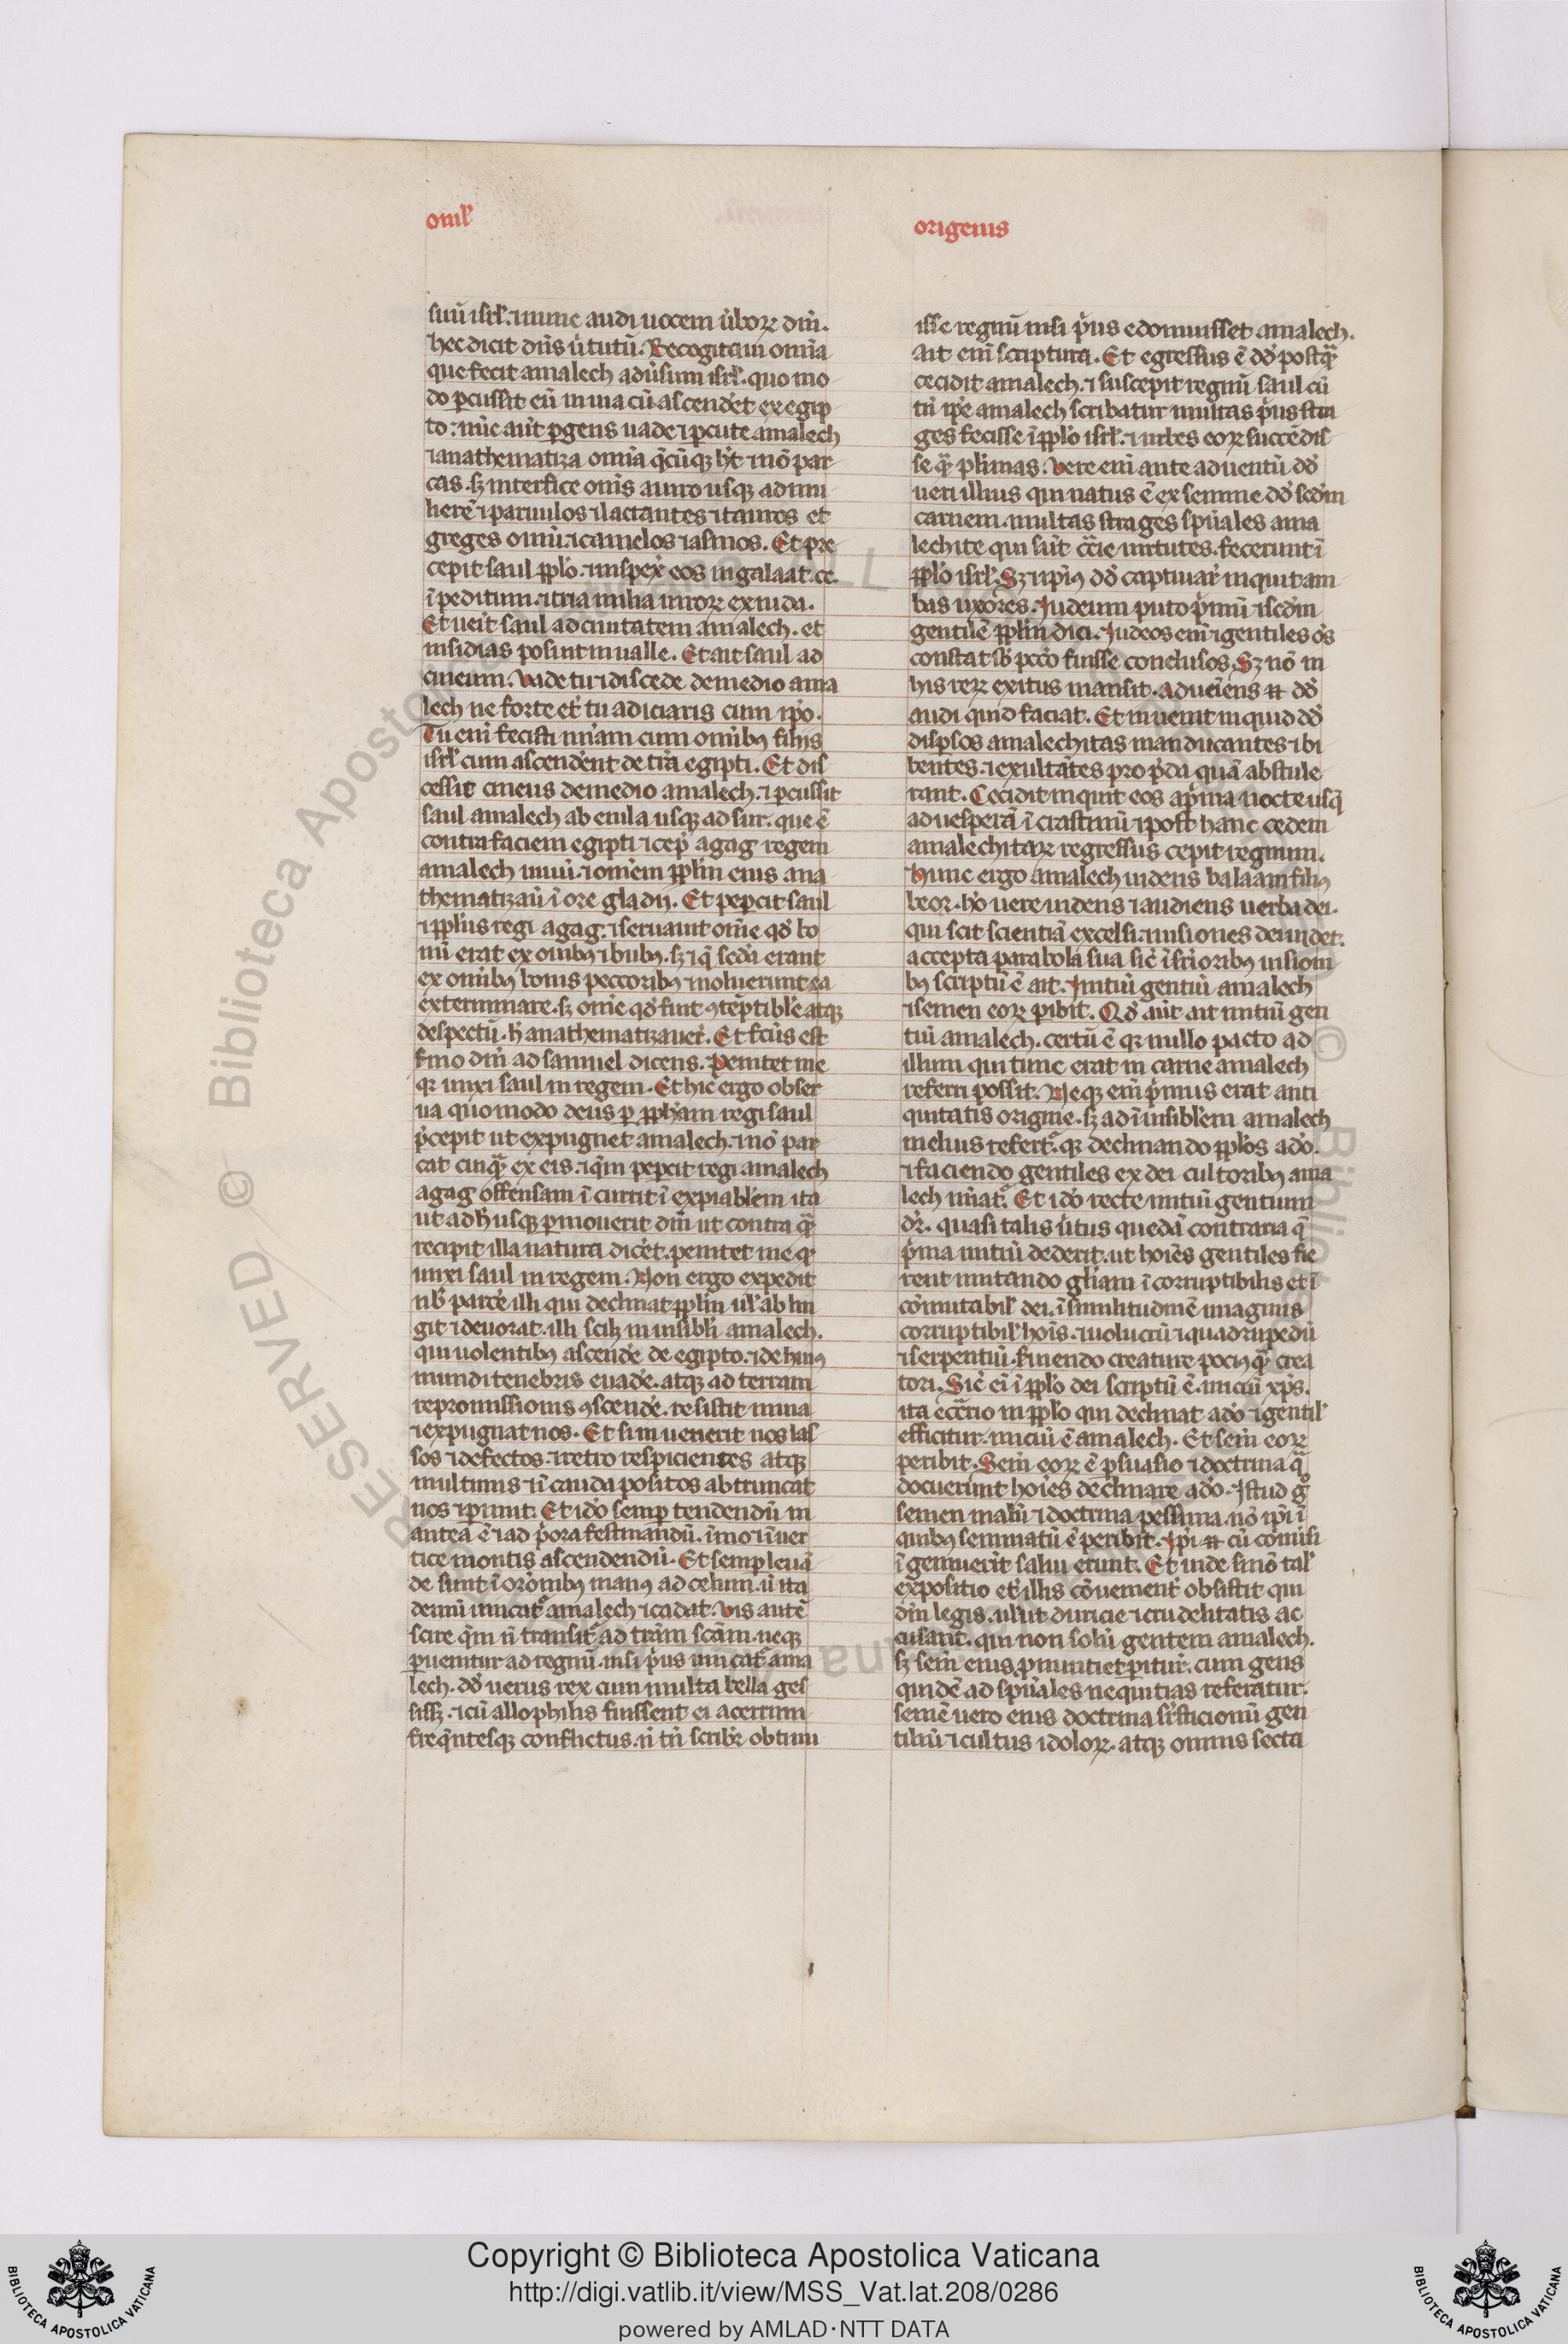 omĺ
origenis
suū isrł. nunc audi uocem ūboꝝ dn̄i.
hec dicit dn̄s ūtutū. Recogitaui om̄ia
que fecit amalech adūsum isrł. quo mo
do ꝑcussit eū in uia cū ascendēt ex egip
to: nūc aūt ꝑgens uade ⁊ ꝑcute amalech
⁊ anathematiza om̄ia q̄cūqꝫ hēt ⁊ nō par
cas. sꝫ interfice om̄s a uiro usqꝫ ad mu
lierē ⁊ paruulos ⁊ lactantes ⁊ tauros et
greges omīu. ⁊ camelos ⁊ asinos. Et pre
cepit saul pplo. ⁊ inspex̄ eos in galaat. cc.
ī peditum. ⁊ tria milia uiroꝝ ex iuda.
Et ueīt saul ad ciuitatem amalech. et
insidias posuit in ualle. Et ait saul ad
cineum. Uade tu ⁊ discede de medio ama
lech ne forte et tu adiciaris cum ip̄o.
Tu enī fecisti mīam cum omībꝰ filiis
isrł cum ascendēnt de t̄ra egipti. Et dis
cessit cineus de medio amalech. ⁊ ꝑcussit
saul amalech ab euila usqꝫ ad sur. que ē
contra faciem egipti ⁊ cep̄ agag regem
amalech uiuū. ⁊ om̄em pplm eius ana
thematizauī ī ore gladii. Et peꝑcit saul
⁊ pplus regi agag. ⁊ seruauit om̄e qd̄ bo
nū erat ex omībꝰ ⁊ bubꝰ. sꝫ ⁊ q̄ sed̄a erant
ex omībꝰ bonis peccoribꝰ ⁊ noluerunt ea
exterminare. sꝫ om̄e qd̄ fuit ꝯtēptible atqꝫ
despectū. h̄ anathematizauer̄. Et fcūs est
ẜmo dn̄i ad samuel dicens. Penitet me
qꝛ unxi saul in regem. Et hic ergo obser
ua quomodo deus ꝑ pph̄am regi saul
p̄cepit ut expugnet amalech. ⁊ nō par
cat cuiqͣ ex eis. ⁊ qm̄ peꝑcit regi amalech
agag offensam īcurrit īexpiablem ita
ut ad h̄ usqꝫ ꝑmouerit dm̄ ut contra qͣ
recipit illa natura dicēt. penitet me qꝛ
unxi saul in regem. Non ergo expedit
nb̄ parcē illi qui declinat pplm uł ablin
git ⁊ deuorat. illi scilꝫ inuisibli amalech.
qui uolentibꝰ ascendē de egipto. ⁊ de huiꝰ
mundi tenebris euadē. atqꝫ ad terram
repromissionis ꝯscendē. resistit in uia
⁊ expugnat nos. Et si inuenerit nos las
sos ⁊ defectos. ⁊ retro respicientes atqꝫ
multimis ⁊ ī cauda positos abtruncat
nos ⁊ ꝑimit. Et idō semꝑ tendendū in
antea ē ⁊ ad p̄ora festinandū. īmo ⁊ ī uer
tice montis ascendendū. Et semꝑ leuā
de sunt ī or̄onibꝰ manꝰ ad celum. ū ita
demū uīcat᷑ amalech ⁊ cadat. Uis autē
scire qm̄ n̄ transit᷑ ad t̄ram sc̄am. neqꝫ
ꝑuenitur ad regnū. nisi p̄us uīcat᷑ ama
lech. dd̄ uerus rex cum multa bella ges
sissꝫ. ⁊ cū allophilis fuissent ei acerrimi
freq̄ntesqꝫ conflictus. n̄ tn̄ scribr̄ obtinu
isse regnū nisi p̄us edomuisset amalech.
Ait enī scriptura. Et egressus ē dd̄ postqͣ
cecidit amalech. ⁊ suscepit regnū saul cū
tn̄ ip̄e amalech scribatur multas p̄us stra
ges fecisse ī pplo isrł. ⁊ urbes eoꝝ succēdis
se qͣ plimas. Vere enī ante aduentū dd̄
ueri illius qui natus ē ex semine dd̄ scd̄m
carnem. multas strages sp̄uales ama
lechite qui sūt ꝯͣrie uirtutes. fecerunt ī
pplo isrł. Sꝫ ⁊ ip̄iꝰ dd̄ captiuar̄ inquit am
bas uxōres. Judeum puto p̄mū ⁊ scd̄m
gentilē pplm dici. Judeos enī ⁊ gentiles os̄
constat sb̄ pcc̄o fuisse conclusos. Sꝫ nō in
his reꝝ exitus mansit. Adueīens ꝗ dd̄
audi quid faciat. Et inuenit inquid dd̄
disꝑsos amalechitas manducantes ⁊ bi
bentes. ⁊ exultātes pro p̄da quā abstule
rant. Cecidit inquit eos a p̄ma nocte usq̄
ad uesperā ī crastinū ⁊ post hanc cedem
amalechitaꝝ regressus cepit regnum.
Hunc ergo amalech uidens balaam filiꝰ
beor. hō uere uidens ⁊ audiens uerba dei.
qui scit scientiā excelsi. uisiones dei uidet.
accepta parabola sua sic̄ ī suꝑioribꝰ uisioni
bꝰ scriptū ē ait. Initiū gentiū amalech
⁊ semen eoꝝ ꝑibit. Qd̄ aūt ait initiū gen
tiū amalech. certū ē qꝛ nullo pacto ad
illum qui tunc erat in carne amalech
referri possit. Neqꝫ enī p̄mus erat anti
quitatis origine. sꝫ ad īuisiblem amalech
melius refert᷑. qꝛ declinando pplos a dō.
⁊ faciendo gentiles ex dei cultoribꝰ ama
lech iniat᷑. Et idō recte initiū gentium
dr̄. quasi talis ūtus quedā contraria q̄
p̄ma initiū dederit. ut hoīes gentiles fie
rent mutando glīam īcorruptibilis et ī
cōmutabil̄ dei. ī similitudinē imaginis
corruptibil̄ hoīs. ⁊ uolucrū ⁊ quadrupedū
⁊ serpentiū. ẜuiendo creature pociꝰ qͣ crea
tori. Sic̄ eī ī pplo dei scriptū ē. iniciū xp̄s.
ita ecͣrio in pplo qui declinat a dō ⁊ gentil̄
efficitur. iniciū ē amalech. Et sem̄ eoꝝ
peribit. Sem̄ eoꝝ ē ꝑsuasio ⁊ doctrina qͣ
docuerunt hoīes declinare a dō. Istud gͦ
semen malū ⁊ doctrina pessima. nō ip̄i ī
quibꝰ seminatū ē peribit. Ip̄i ꝗ cū cōmisi
īgemuerīt salui erunt. Et inde sinō tal̄
expositio et illis cōuenienť obsistit qui
dm̄ legis. uelut duricie ⁊ crudelitatis ac
cusant. qui non solū gentem amalech.
sꝫ sem̄ eius pnuntiet ꝑituꝝ. cum gens
quidē ad sp̄uales nequitias referatur.
semē uero eius doctrina sr̄sticionū gen
tiliū ⁊ cultus idoloꝝ. atqꝫ omnis secta
Copyright © Biblioteca Apostolica Vaticana
http://digi.vatlib.it/view/MSS_Vat.lat.208/0286
powered by AMLAD·NTT DATA